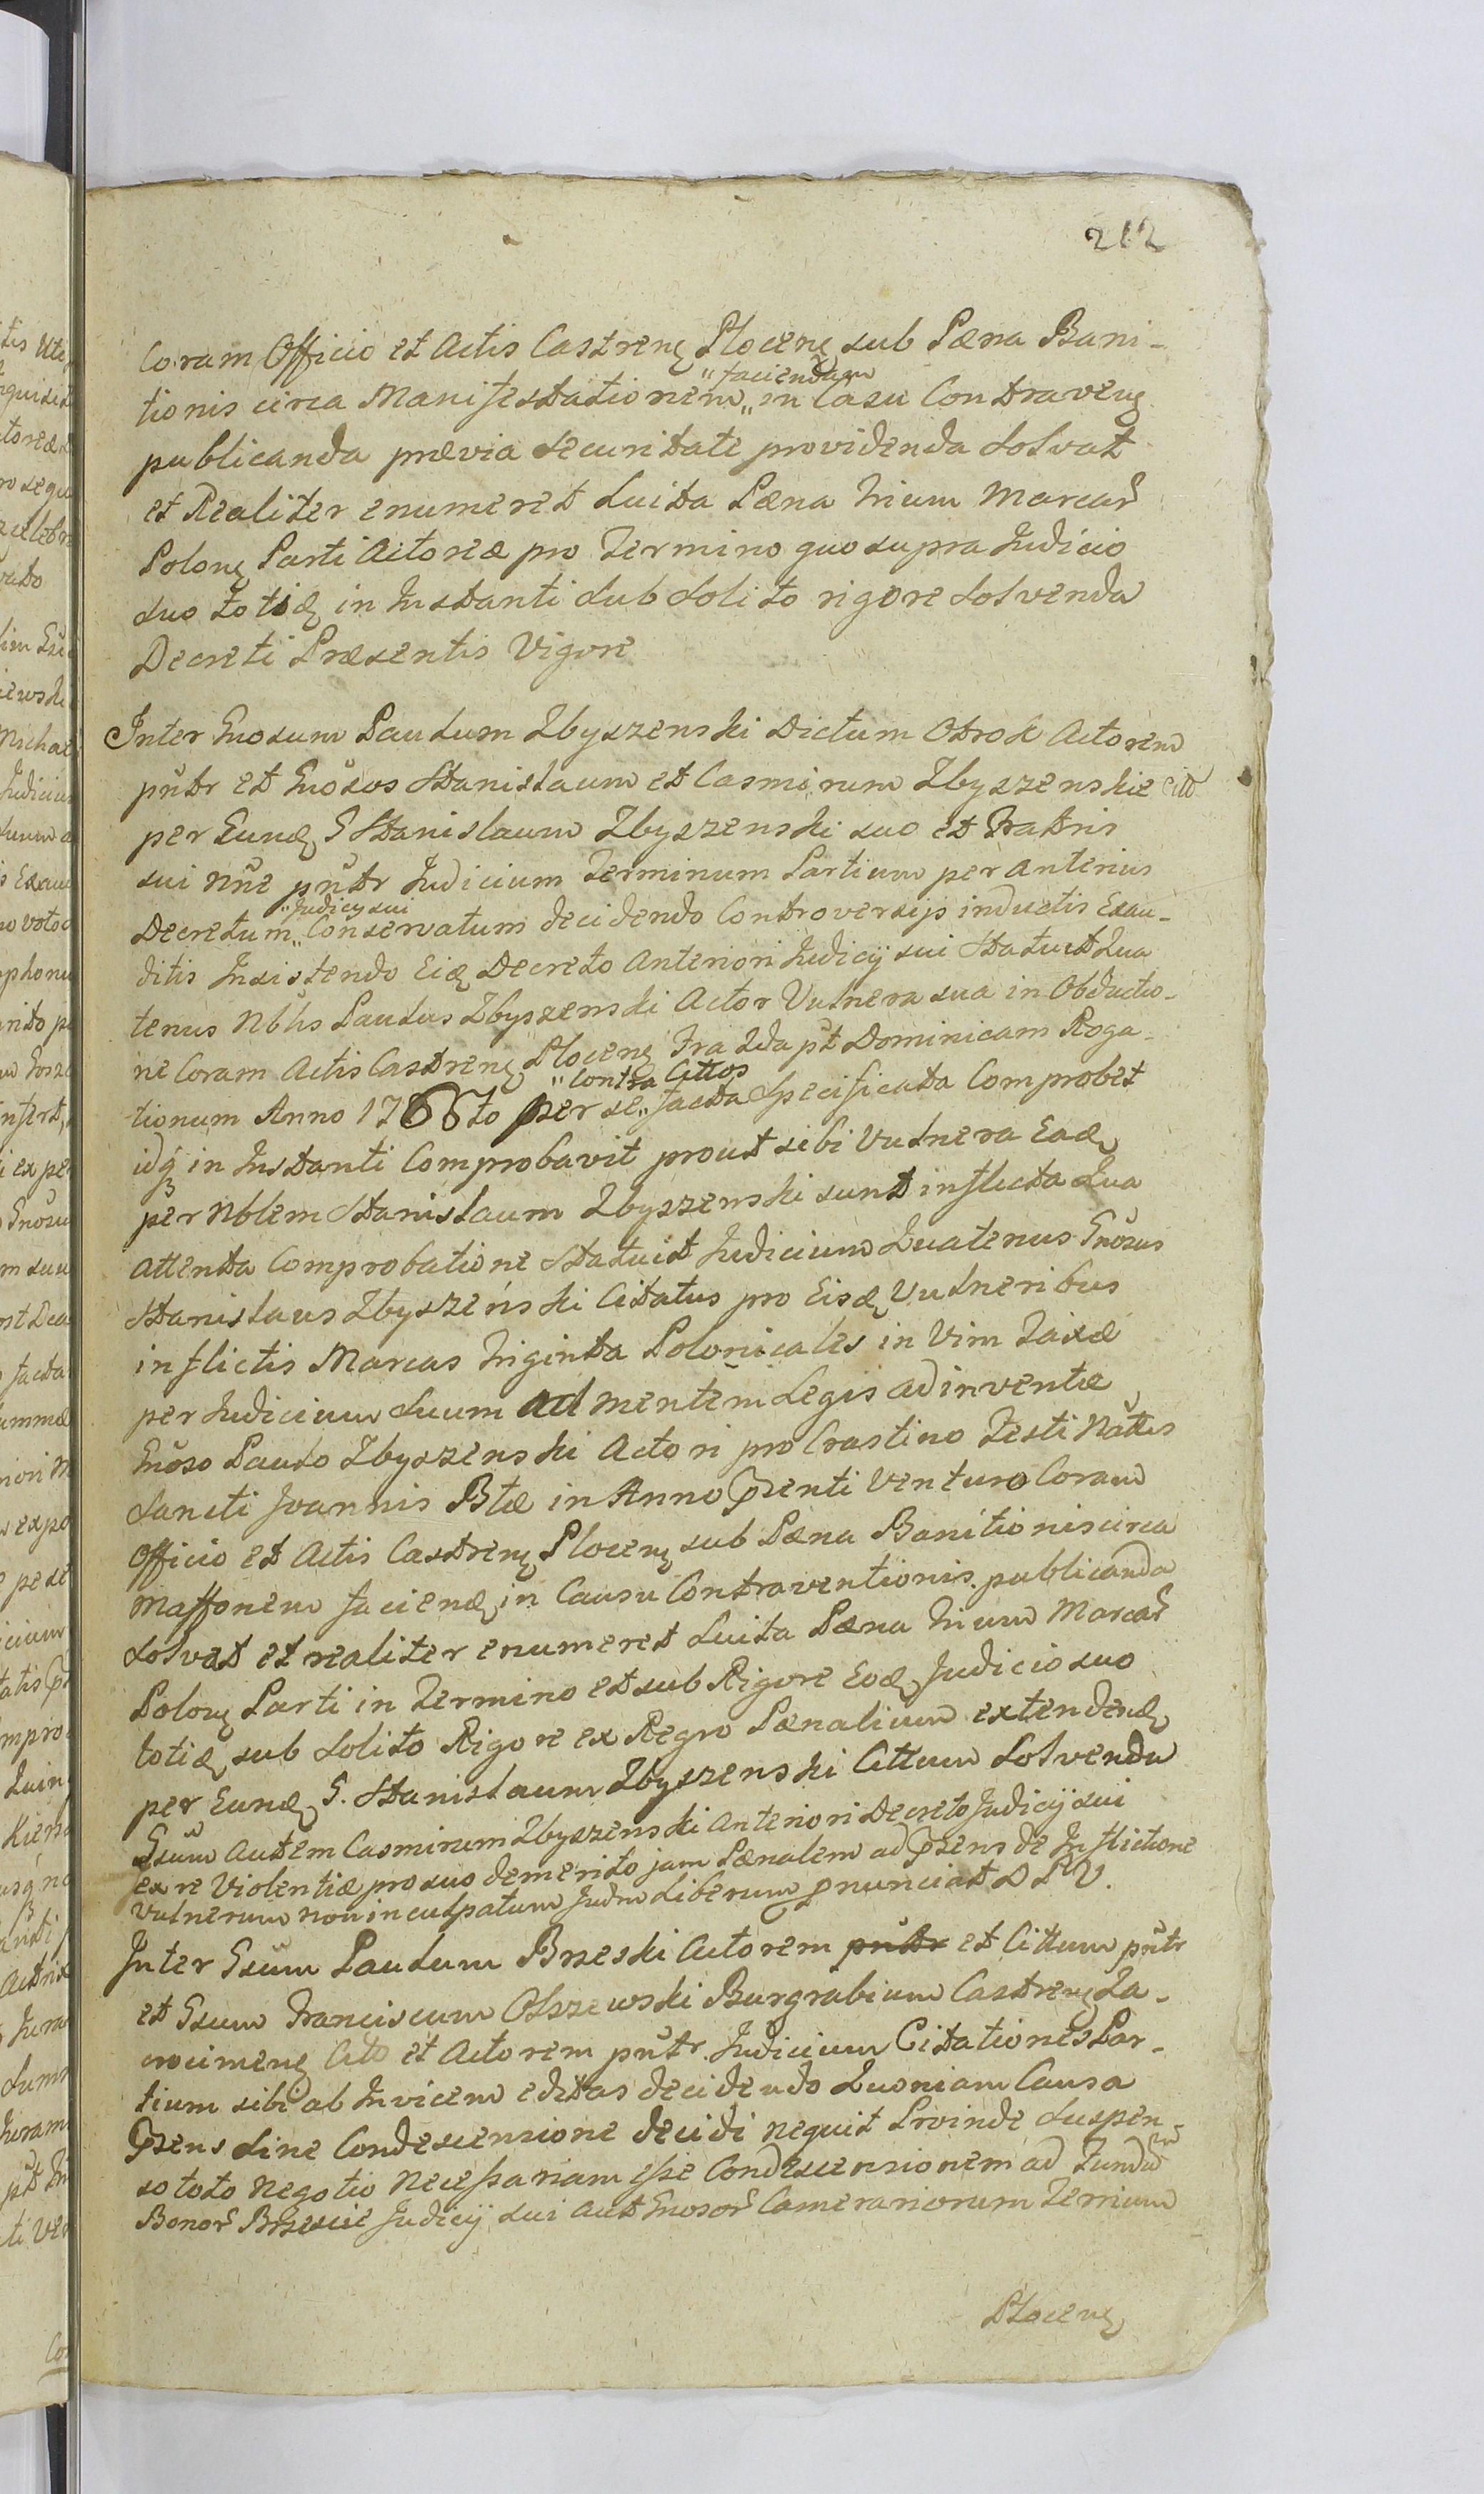 212
Coram Officio et Actis Castren Plocen sub Pæna Bani-
tionis circa Manifestationem „faciendam„ in Casu Contraven
publicanda prævia securitate providenda solvat
et Realiter enumeret Luita Pæna trium Marcar
Polon Parti Actoreæ pro Termino quo supra Judicio
suo totid in Instanti sub solito rigore solvenda
Decreti Præsentis Vigore
Inter Gnosum Paulum Zbyszenski Dictum Otrok Actorem
pntr et Gnosos Stanislaum et Casmirum Zbyszenskie Citt
per Eund G Stanislaum Zbyszenski suo et Fratris
sui nne pntr Judicium Terminum Partium per Anterius
Decretum „Judicy sui„ Conservatum decidendo Controversijs inductis Exau-
ditis Insistendo Eid Decreto Anteriori Judicij sui Statuit Qua
tenus Nblis Paulus Zbyszenski Actor Vulnera sua in Obductio-
ne Coram Actis Castren Plocen Fra 2da pt Dominicam Roga-
tionum Anno 1766to per se „Contra Cittos„ facta Specificata Comprobet
idq in Instanti Comprobavit prout sibi Vulnera Ead
per Nblem Stanislaum Zbyszenski sunt inflicta Qua
attenta Comprobatione Statuit Judicium Quatenus Gnosus
Stanislaus Zbyszeński Citatus pro Eisd Vulneribus
inflictis Marcas triginta Polonicales in Vim Taxæ
per Judicium suum ad mentem Legis adinventæ
Gnoso Paulo Zbyszenski Actori pro Crastino Festi Nattis
Sancti Joannis Btæ in Anno Psenti Venturo Coram
Officio et Actis Castren Plocen sub Pæna Banitionis circa
Maffonem faciend in Causu Contraventionis publicanda
solvat et realiter enumeret Luita Pæna trium Marcar
Polon Parti in Termino et sub Rigore Eod Judicio suo
totid sub solito Rigore ex Regro Pænalium extendend
per Eund G. Stanislaum Zbyszenski Cittum Solvenda
Gsum Autem Casmirum Zbyszenski Anteriori Decreto Judicij sui
ex re Violentiæ pro suo demerito jam Pænalem ad Psens de Inflictione
Vulnerum non inculpatum Judm Liberum pnunciat D P V.
Inter Gsum Paulum Brzeski Actorem pntr et Cittum pntr
et Gsum Franciscum Olszewski Burgrabium Castren Za-
crocimen Citt et Actorem pntr. Judicium Citationes Par-
tium sibi ab Invicem editas decidendo Quoniam Causa
Psens sine Condescensione decidi nequit Proinde suspen-
so toto Negotio Necessariam esse Condescensionem ad Fundum
Bonor Brzescie Judicij sui aut Gnosor Camerariorum Terrium
Plocen